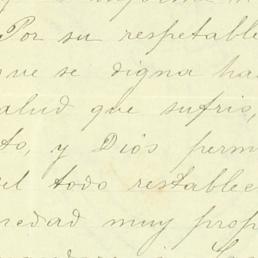 Por su respetable
que se digna ha
salud que sufris,
to, y Dios perm
del todo restablec
edad muy prop